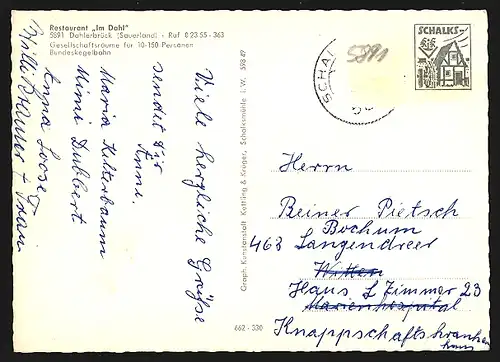 Restaurant „Im Dahl"
5891 Dahlerbrück (Sauerland) · Ruf 0 23 55 - 363
Gesellschaftsräume für 10-150 Personen
Bundeskegelbahn
Viele herzliche Grüße
sendet Dir
Anni.
Maria Kilterbaum
Mimi Dubbert
Anna Loose
Willi + Frau
Graph. Kunstanstalt Kuttring & Krüger, Schalksmühle i. W. 598 49
662 - 330
SCHAL
5891
SCHALKS-
Herrn
Reiner Pietsch
Bochum
463 Langendreer
Witten
Haus L Zimmer 23
Marienhospital
Knappschaftskranken
haus